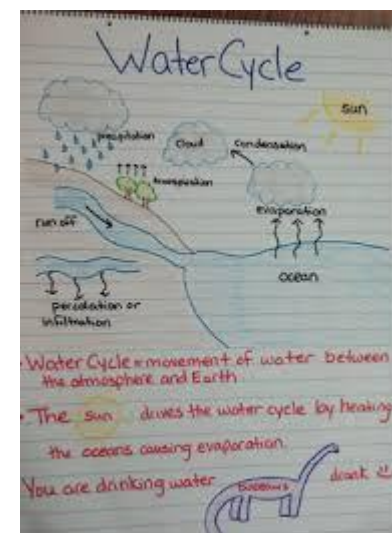 Water Cycle
sun
precipitation
cloud
condensation
transpiration
evaporation
run off
ocean
percolation or
infiltration
• Water Cycle = movement of water between
the atmosphere and Earth
• The sun drives the water cycle by heating
the oceans causing evaporation.
You are drinking water dinosaurs drank